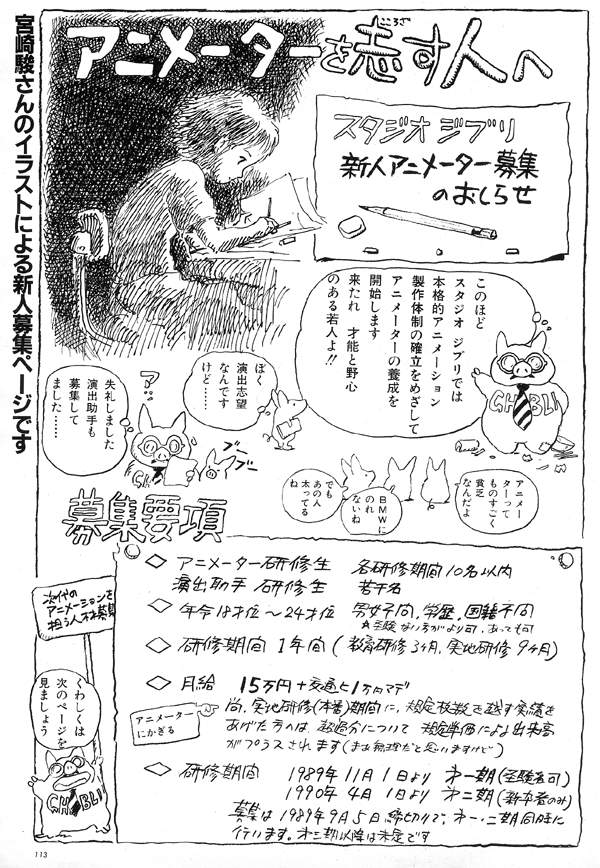 宮崎駿さんのイラストによる新人募集ページです
アニメーターを志す人へ
こころざ
スタジオ ジブリ
新人アニメーター募集
のおしらせ
このほど
スタジオ ジブリでは
本格的アニメーション
製作体制の確立をめざして
アニメーターの養成を
開始します
来たれ 才能と野心
のある若人よ!!
GHIBLI
ぼく
演出志望
なんです
けど…
?
失礼しました
演出助手も
募集して
ました……
ブー
ブー
アニメー
ターって
ものすごく
貧乏
なんだよ
BMWに
のれ
ないね
でも
あの人
太ってる
ね
募集要項
◇ アニメーター研修生 各研修期間10名以内
演出助手 研修生 若干名
◇ 年令18才位〜24才位 男女不問、学歴、国籍不問
経験ない方がより可、あっても可
◇ 研修期間 1年間(教育研修3ヶ月、実地研修9ヶ月)
◇ 月給 15万円+交通ヒ1万円マデ
アニメーター
にかぎる
尚、実地研修(本番)期間に、規定枚数を越す実績を
あげた方へは、超過分について 規定単価により出来高
がプラスされます(まあ無理だと思いますけど)
◇ 研修期間 1989年11月1日より 才一期(経験者可)
1990年4月1日より 才二期(新卒者のみ)
募集は1989年9月5日締切りで、才一・二期同時に
行います。才三期以降は未定です
次代の
アニメーションを
担う人材募集
くわしくは
次のページを
見ましょう
GHIBLI
113